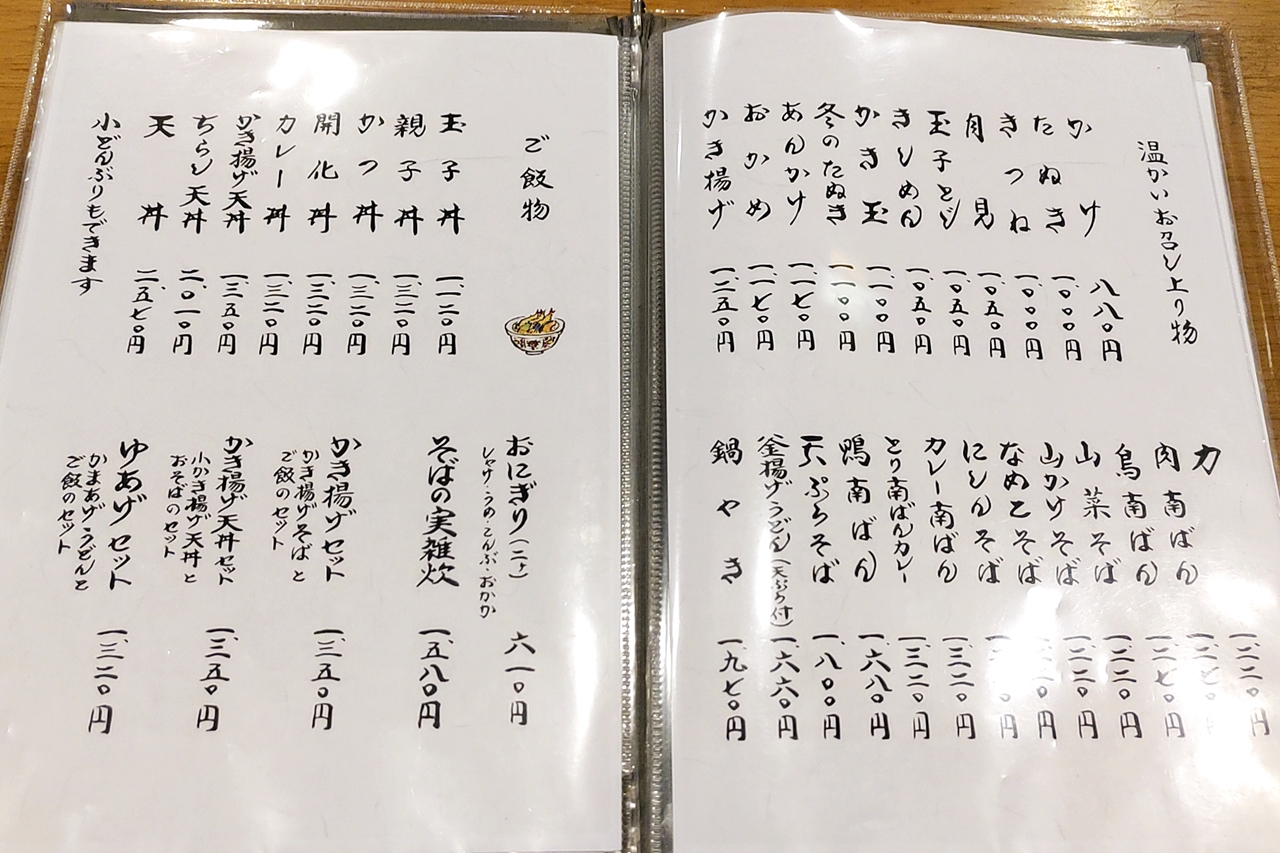 温かいお召し上り物
かけ 八八〇円
たぬき 一、〇〇〇円
きつね 一、〇〇〇円
月見 一、〇五〇円
玉子とじ 一、〇五〇円
きしめん 一、〇五〇円
かき玉 一、一〇〇円
冬のたぬき 一、一〇〇円
あんかけ 一、一七〇円
おかめ 一、一七〇円
かき揚げ 一、二五〇円
力 一、二二〇円
肉南ばん
鳥南ばん 一、二七〇円
山菜そば 一、二二〇円
山かけそば 一、二二〇円
なめこそば
にしんそば
カレー南ばん 一、三二〇円
とり南ばんカレー 一、三二〇円
鴨南ばん 一、六八〇円
天ぷらそば 一、八〇〇円
釜揚げうどん(天ぷら付) 一、六六〇円
鍋やき 一、九七〇円
ご飯物
玉子丼 一、一二〇円
親子丼 一、三二〇円
かつ丼 一、三二〇円
開化丼 一、三二〇円
カレー丼 一、三二〇円
かき揚げ天丼 一、三五〇円
ちらし天丼 二、〇一〇円
天丼 二、五七〇円
小どんぶりもできます
おにぎり(二ケ) 六一〇円
シャケ・うめ・こんぶ・おかか
そばの実雑炊 一、五八〇円
かき揚げセット 一、三五〇円
かき揚げそばと
ご飯のセット
かき揚げ天丼セット 一、三五〇円
小かき揚げ天丼と
おそばのセット
ゆあげセット 一、三二〇円
かまあげうどんと
ご飯のセット